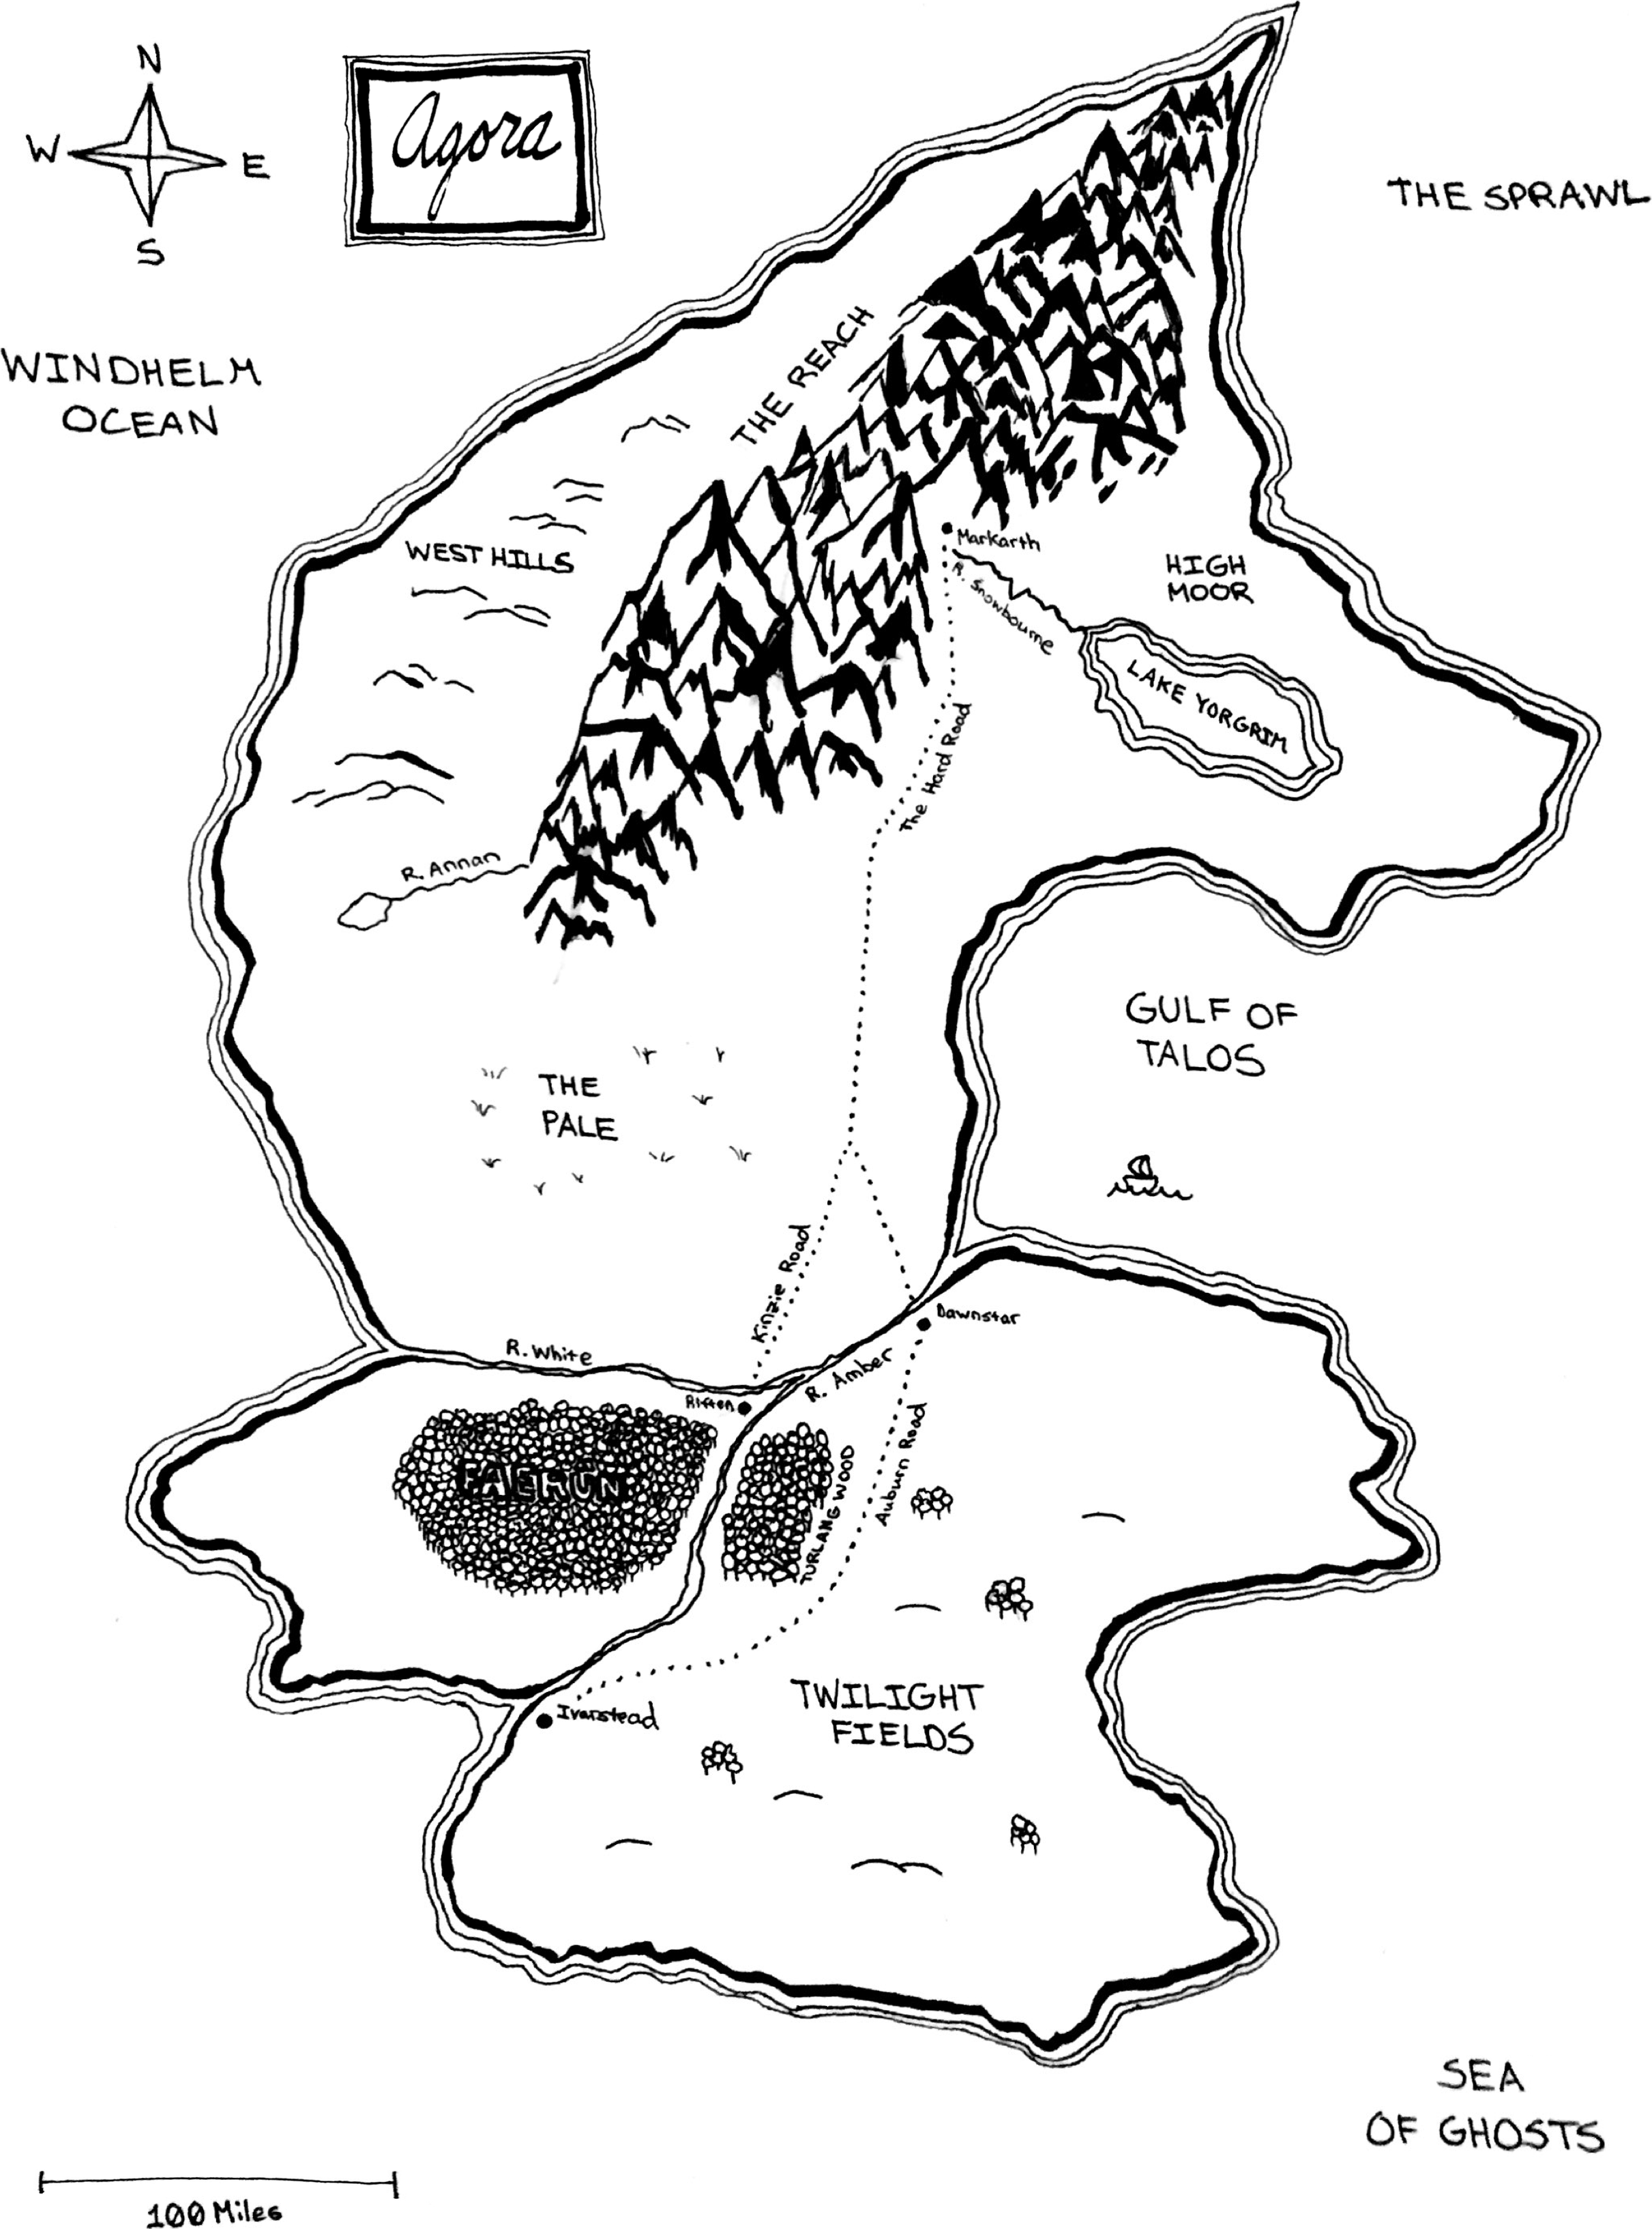 N
W
E
S
Agora
THE SPRAWL
WINDHELM
OCEAN
THE REACH
WEST HILLS
Markarth
R. Snowbourne
HIGH
MOOR
LAKE YORGRIM
The Hard Road
R. Annan
GULF OF
TALOS
THE
PALE
Kinzie Road
Dawnstar
R. White
R. Amber
Riften
FAERÛN
TURLANG WOOD
Auburn Road
Ivarstead
TWILIGHT
FIELDS
SEA
OF GHOSTS
100 Miles